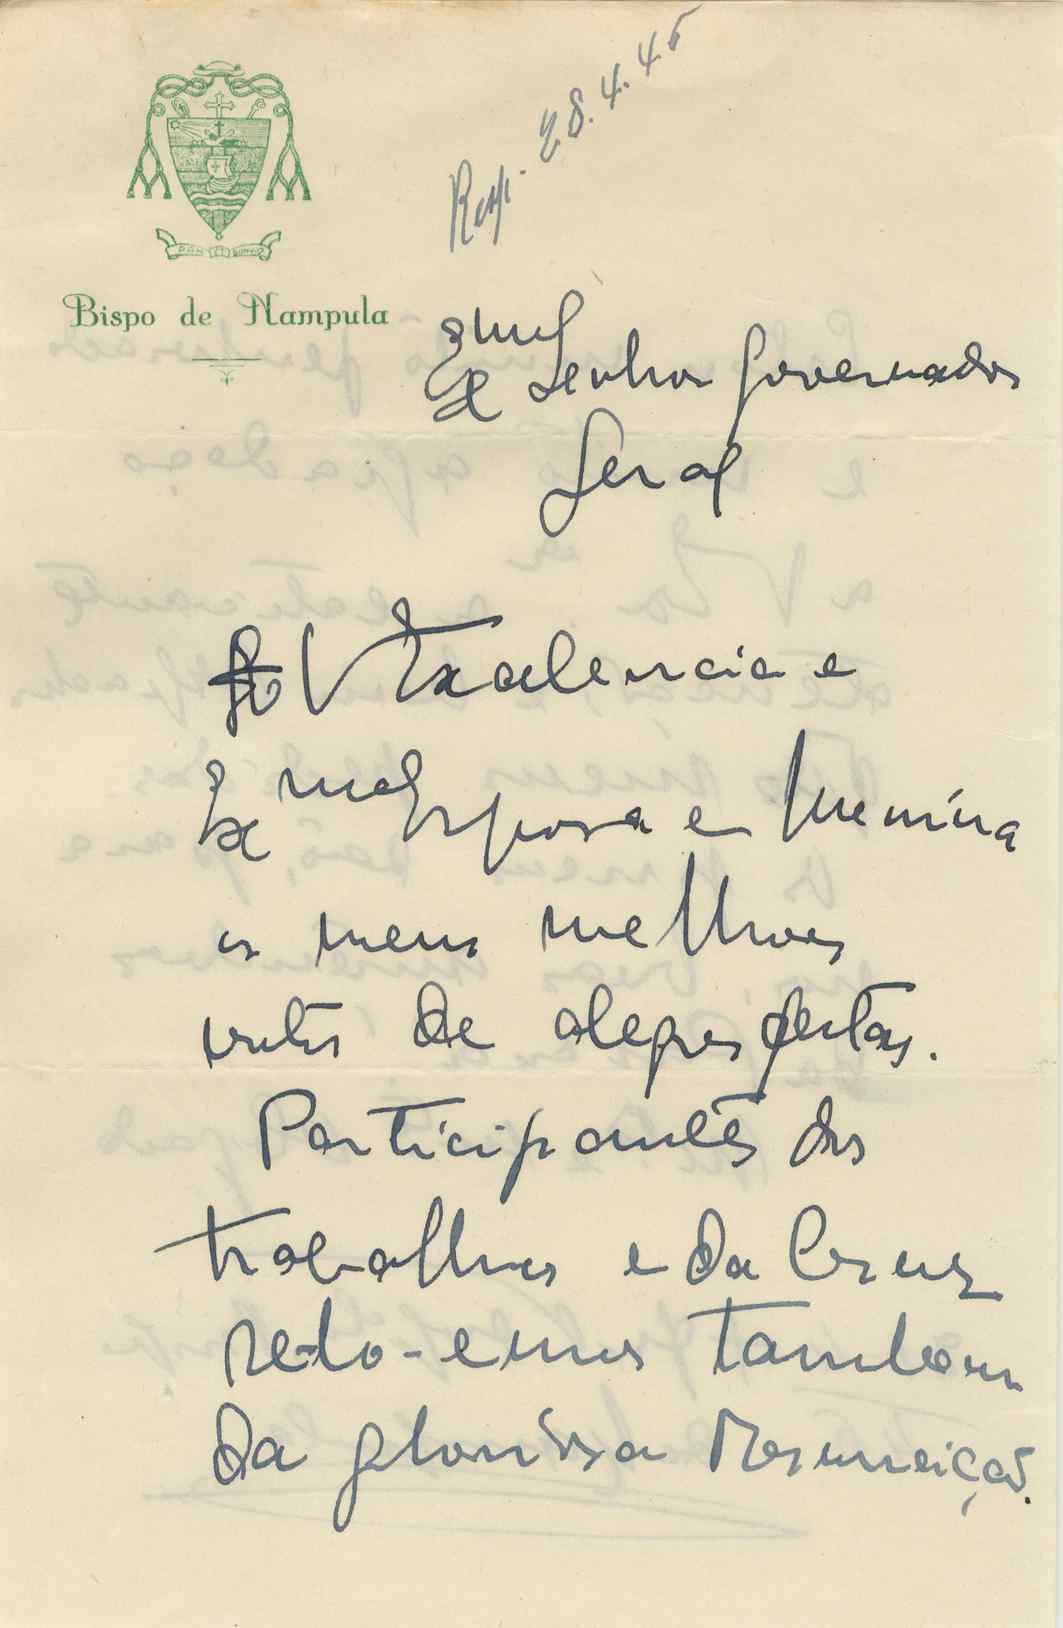 Resp. 28.4.45
Bispo de Nampula
Exmo Senhor Governador
Geral
A V Excelencia e
Exma Esposa e Menina
os meus melhores
votos de alegres festas.
Participantes dos
trabalhos e da Cruz
sê-lo-emos tambem
da gloriosa Ressurreição.